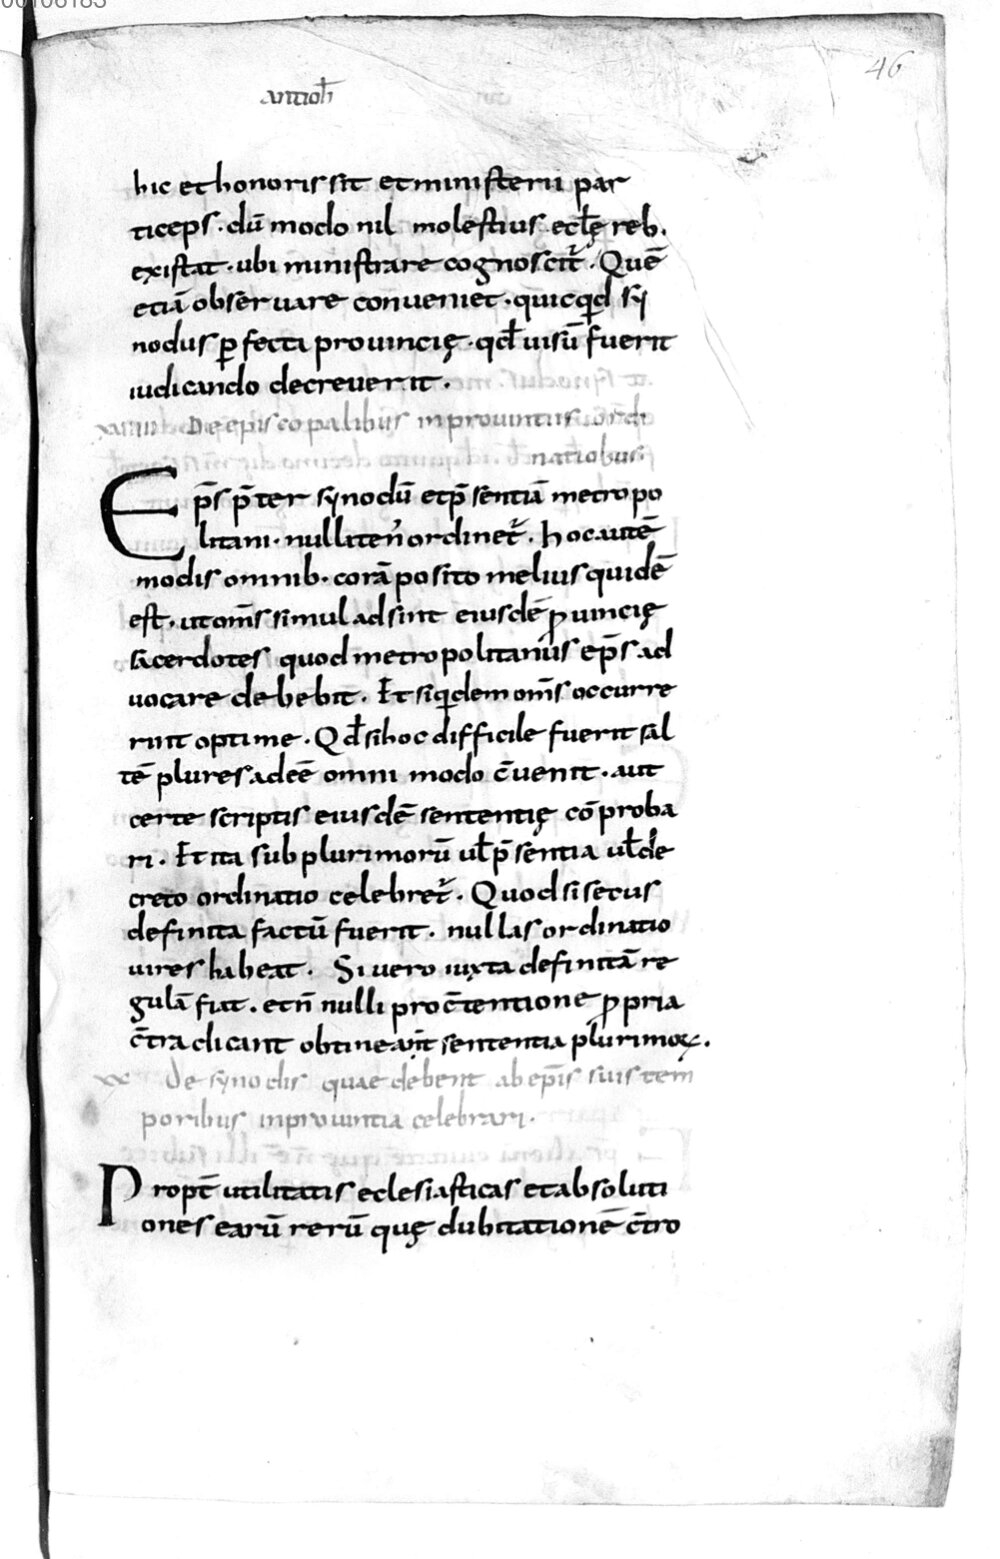 00108183
46
antioch
hic et honoris sit et ministerii par
ticeps · dū modo nil molestius ecłę reb.
existat · ubi ministrare cognoscit᷑ · Quē
etiā observare conveniet · quicqͥd sy
nodus ꝑfecta provincię · qđ visū fuerit
iudicando decreverit ·
xviiii De episcopalibus in provintiis ordi
nationibus.
Ep̄s p̄ter synodū et p̄sentiā metropo
litani · nullaten᾿ ordinet᷑ · hoc autē
modis omnib · corā posito melius quidē
est · ut om̄s simul adsint eiusdē ꝓvincię
sacerdotes quod metropolitanus ep̄s ad
vocare debebit · Et siqͥdem om̄s occurre
rint optime · Qđ si hoc difficile fuerit sal
tē plures adeē omni modo c̄venit · aut
certe scriptis eiusdē sententię cōproba
ri · Et ita sub plurimorū uł p̄sentia uł de
creto ordinatio celebret᷑ · Quod si secus
definita factū fuerit · nullas ordinatio
vires habeat · Si vero iuxta definitā re
gulā fiat · et n̄nulli pro c̄tentione ꝓpria
c̄tradicant obtineat sententia plurimoꝝ.
xx De synodis quae debent ab ep̄is suis tem
poribus in provintia celebrari ·
Propt̄ utilitatis eclesiasticas et absoluti
ones earū rerū quę dubitationē c̄tro